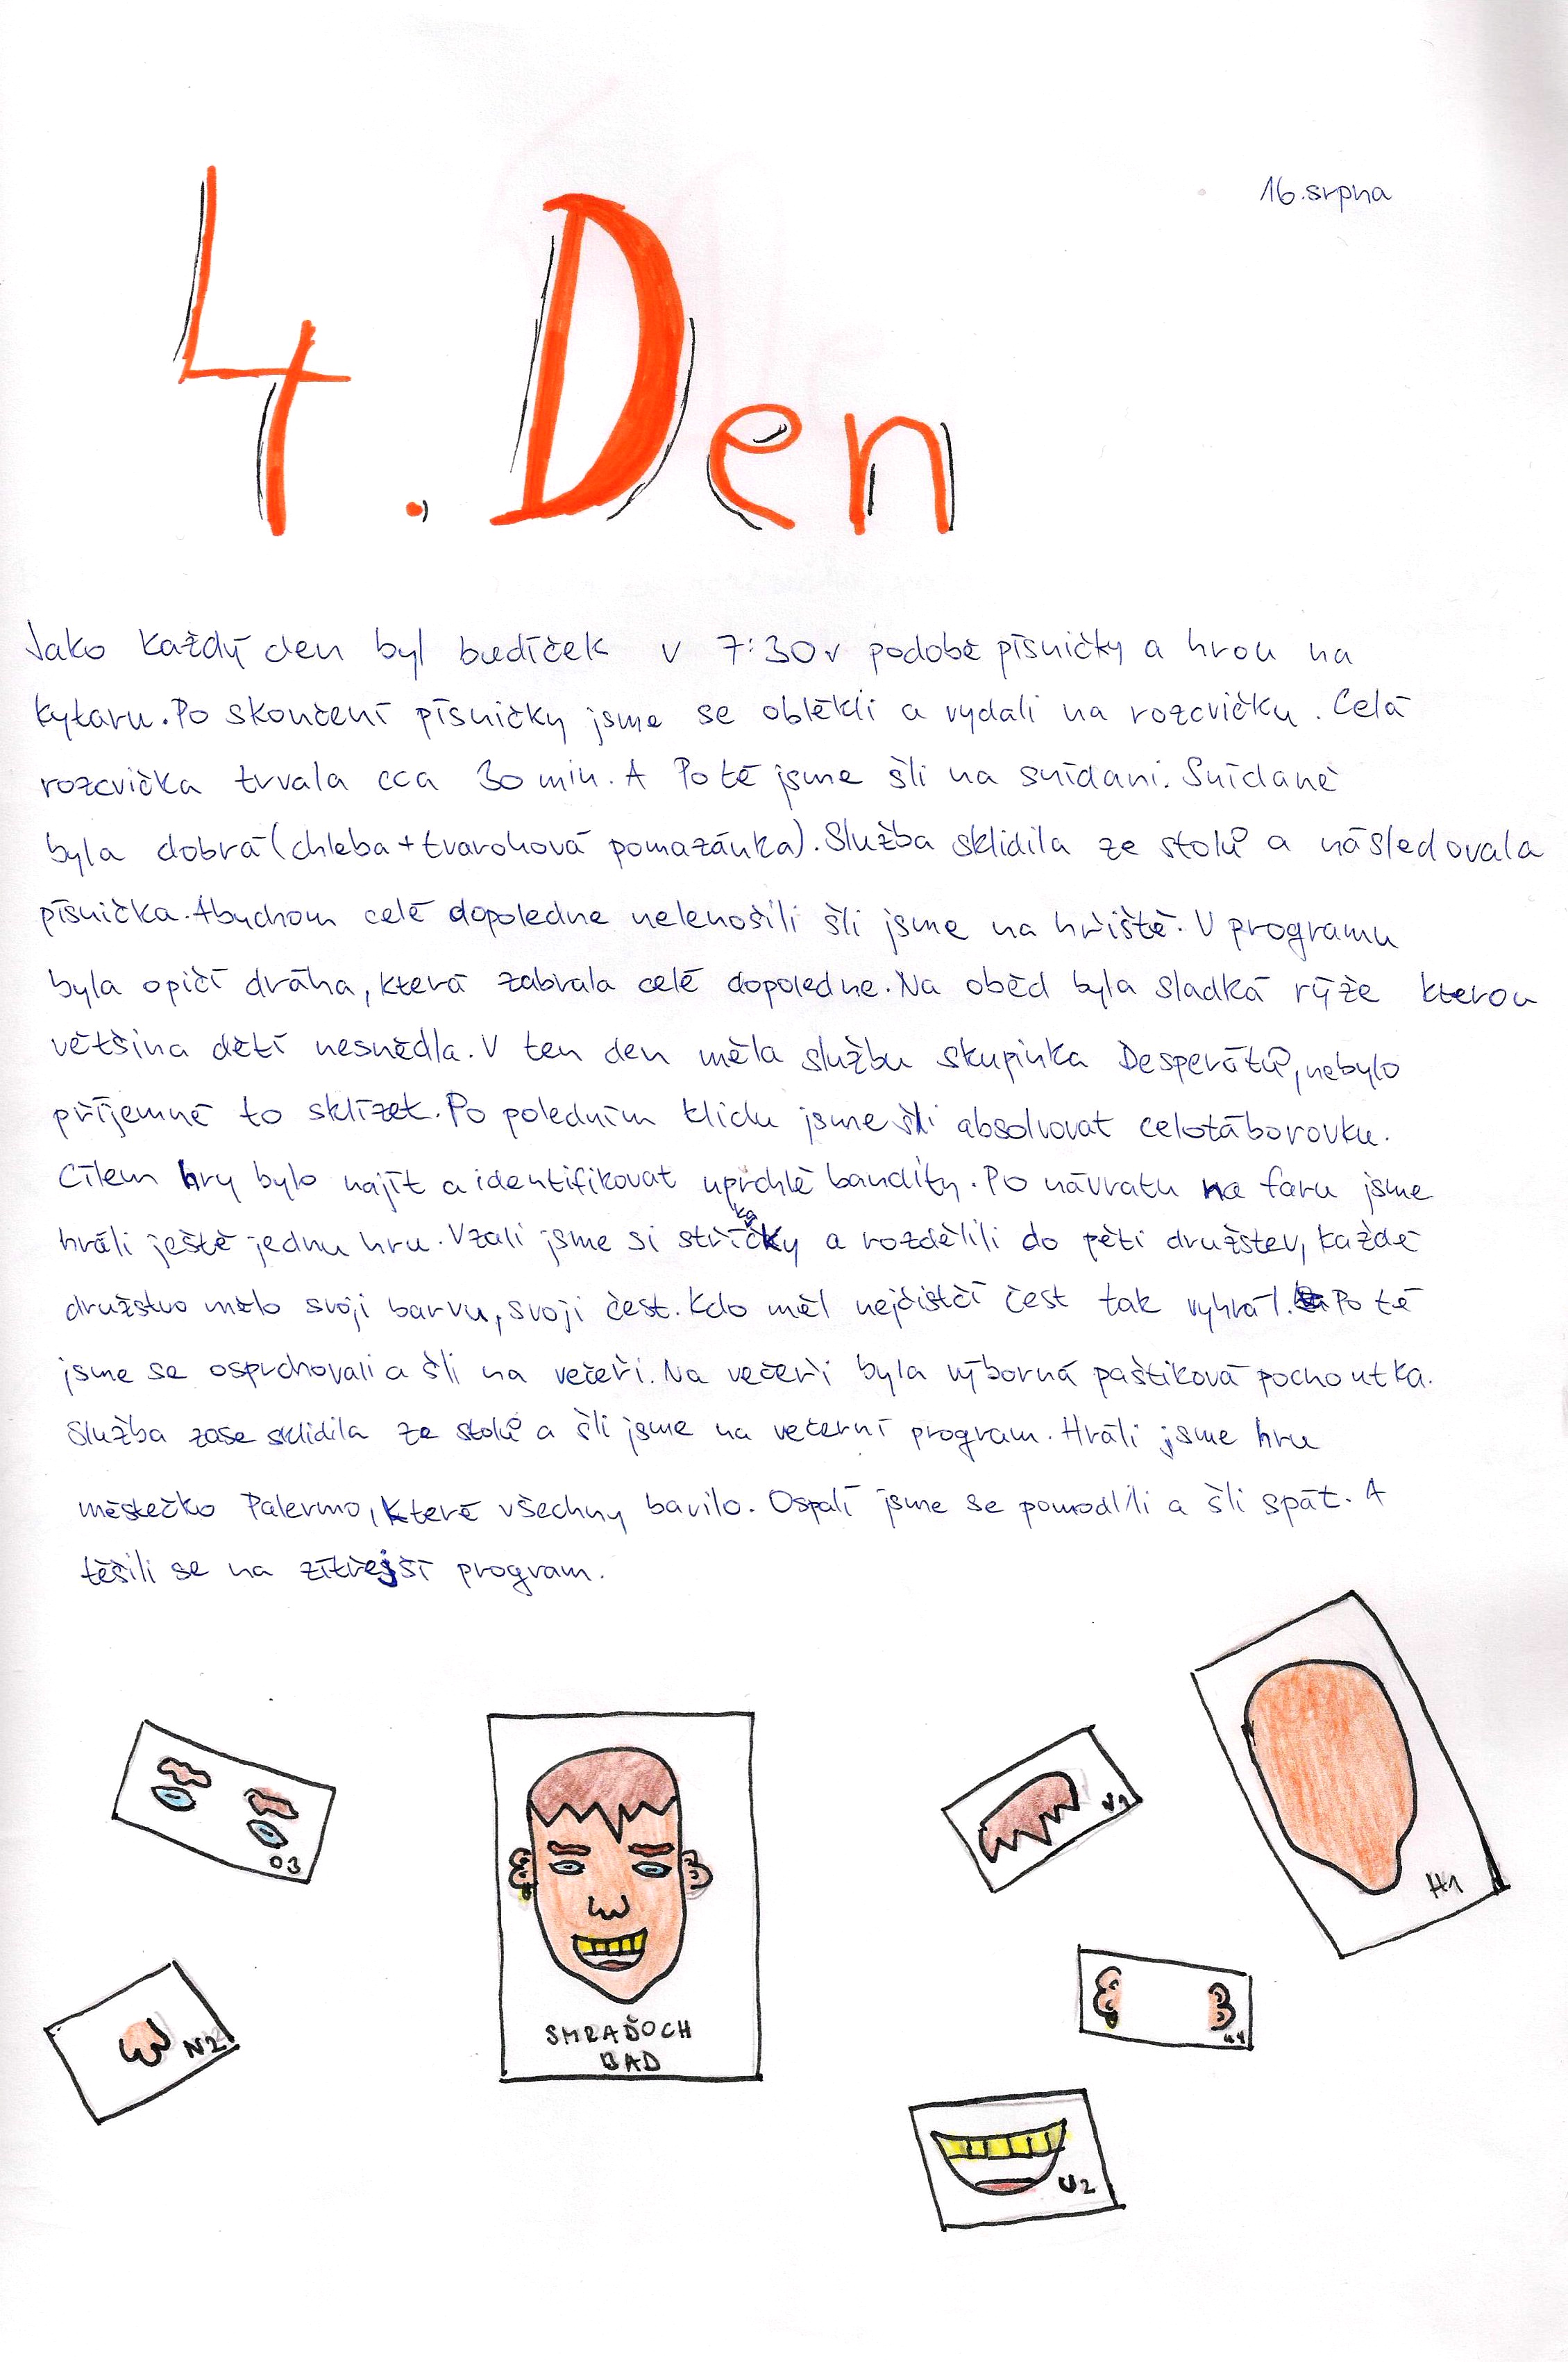 16. srpna
4. Den
Jako každý den byl budíček v 7:30 v podobě písničky a hrou na
kytaru. Po skončení písničky jsme se oblékli a vydali na rozcvičku. Celá
rozcvička trvala cca 30 min. A Po té jsme šli na snídani. Snídaně
byla dobrá (chleba + tvarohová pomazánka). Služba sklidila ze stolů a následovala
písnička. Abychom celé dopoledne nelenošili šli jsme na hřiště. V programu
byla opičí dráha, která zabrala celé dopoledne. Na oběd byla sladká rýže kterou
většina dětí nesnědla. V ten den měla službu skupinka Desperátů, nebylo
příjemné to sklízet. Po poledním klidu jsme šli absolvovat celotáborovku.
Cílem hry bylo najít a identifikovat uprchlé bandity. Po návratu na faru jsme
hráli ještě jednu hru. Vzali jsme si stříkačky a rozdělili do pěti družstev, každé
družstvo mělo svoji barvu, svoji čest. Kdo měl nejčistčí čest tak vyhrál. Po té
jsme se osprchovali a šli na večeři. Na večeři byla výborná paštiková pochoutka.
Služba zase sklidila ze stolů a šli jsme na večerní program. Hráli jsme hru
městečko Palermo, které všechny bavilo. Ospalí jsme se pomodlili a šli spát. A
těšili se na zítřejší program.
O3
V1
H1
N2
SMRAĎOCH
BAD
U1
U2